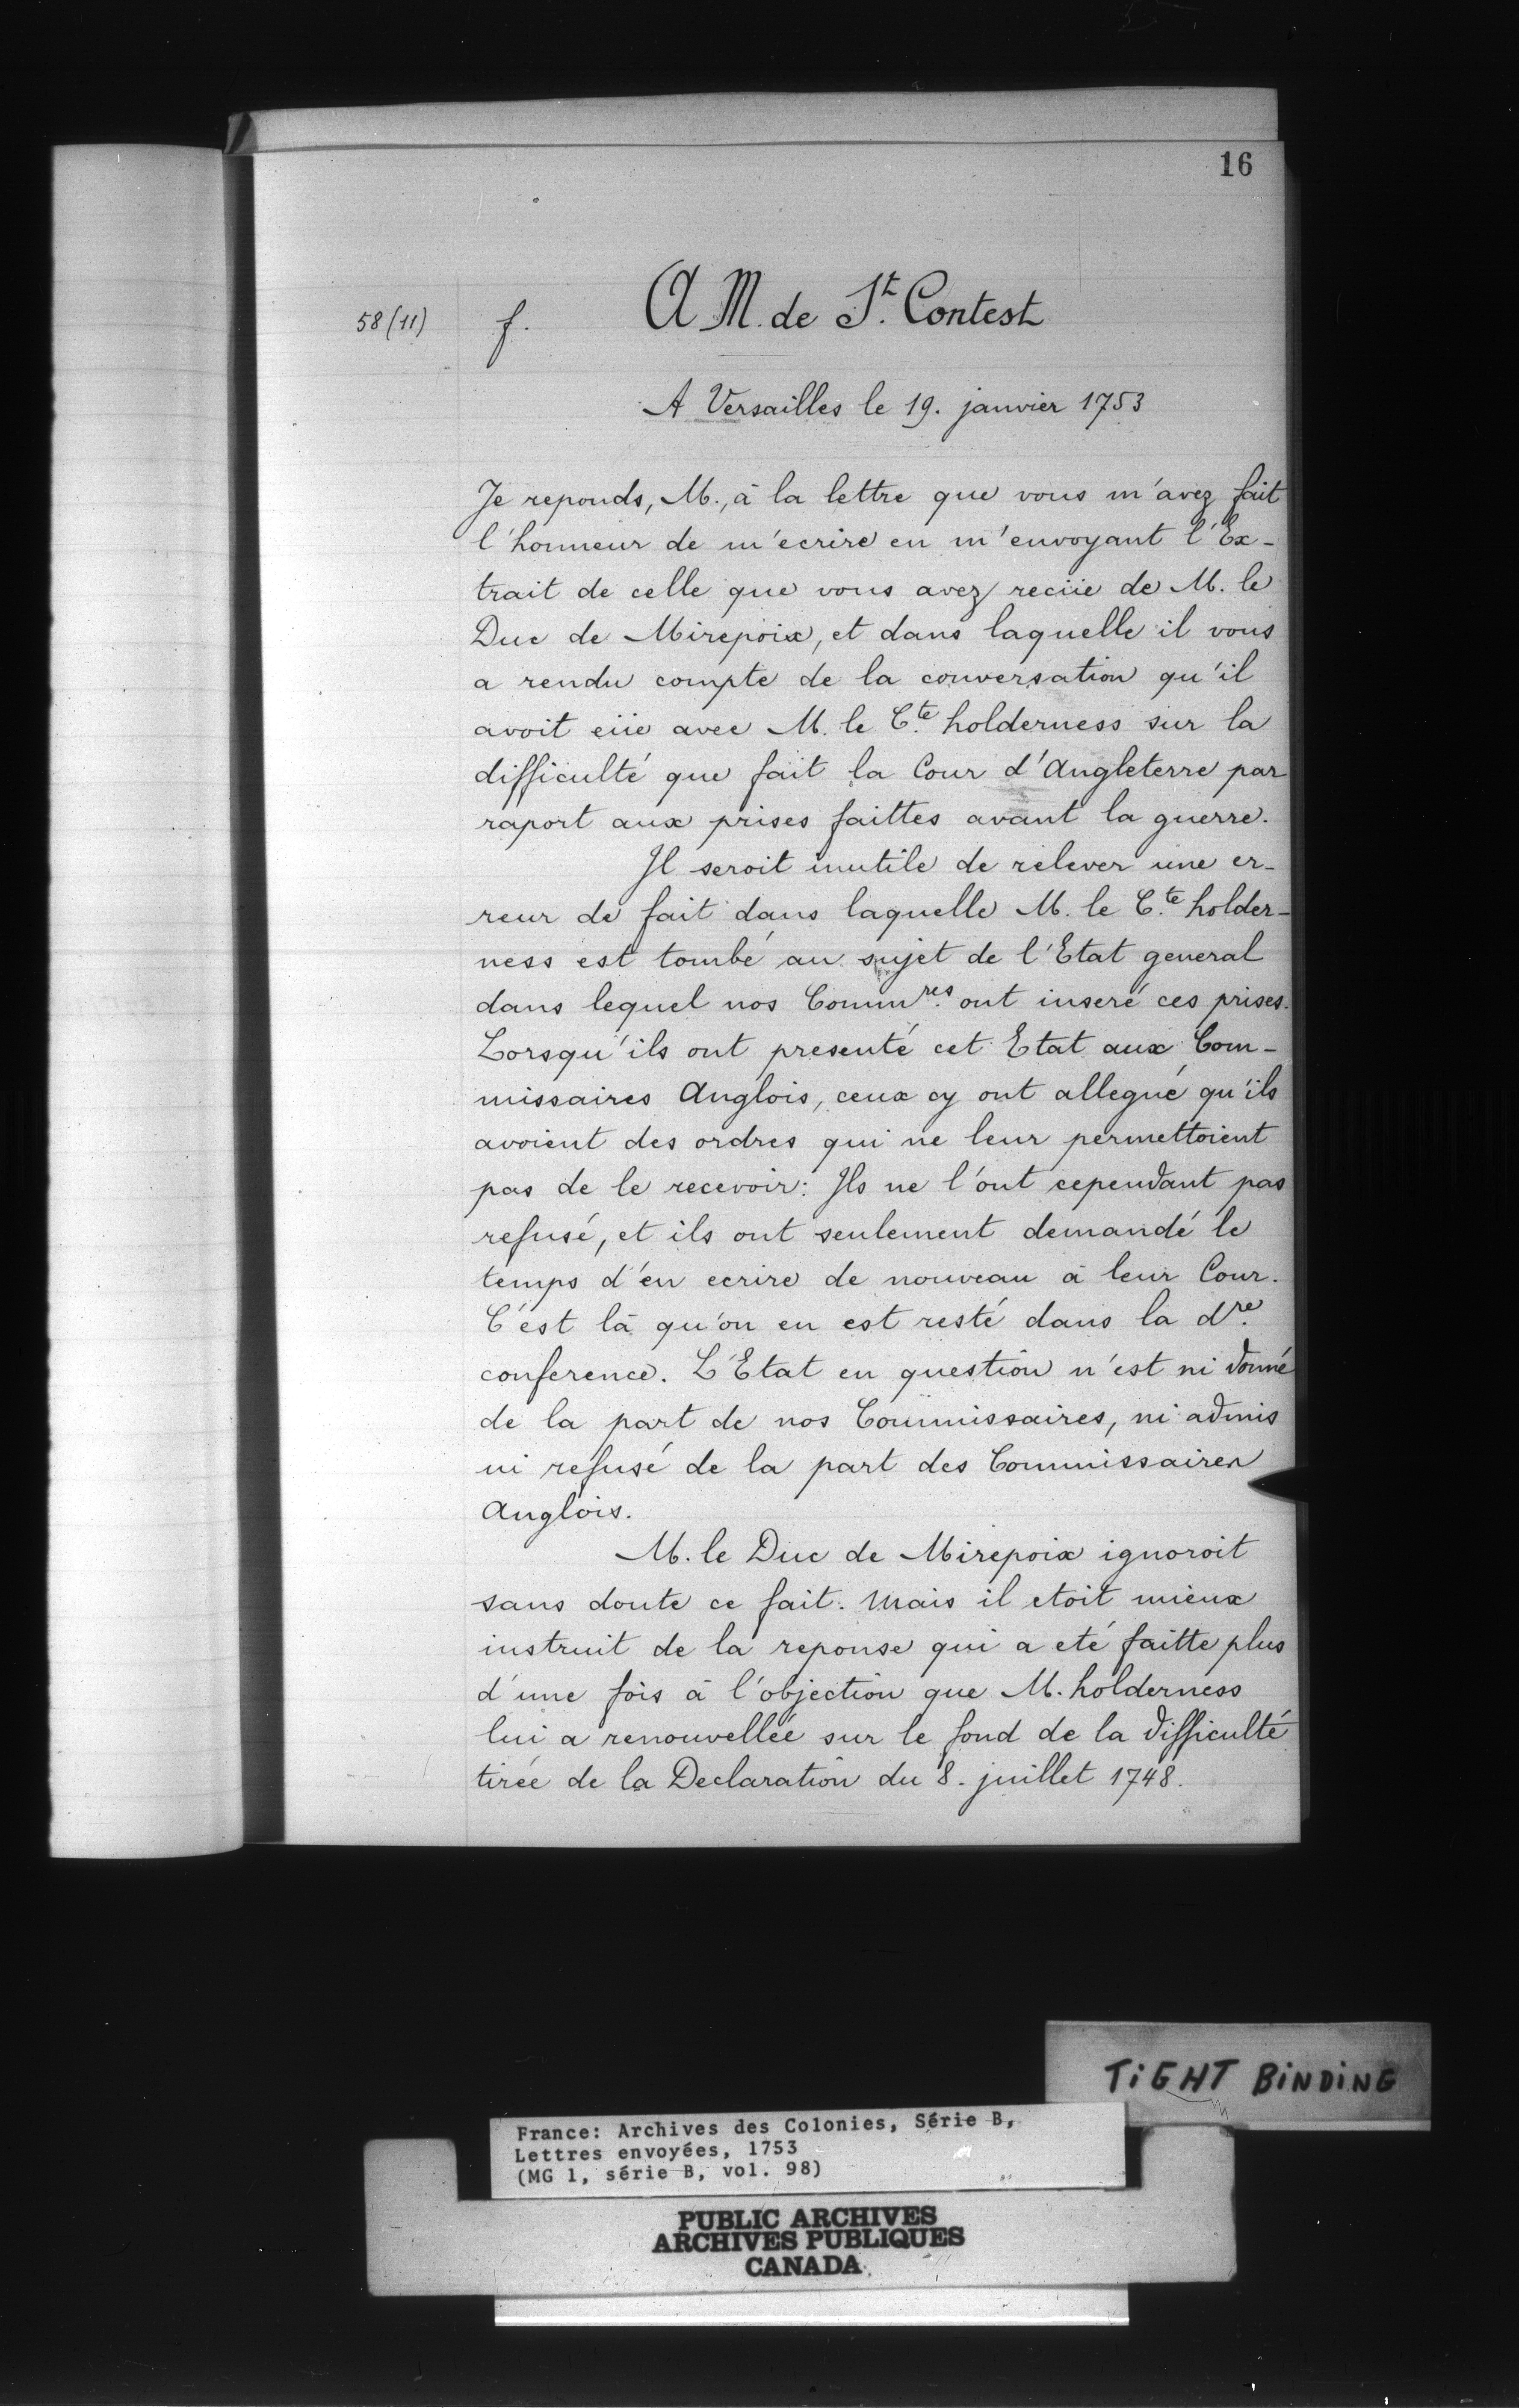 16
58 (11) f. A M. de St. Contest
A Versailles le 19. janvier 1753
Je reponds, M., à la lettre que vous m'avez fait
l'honneur de m'ecrire en m'envoyant l'Ex-
trait de celle que vous avez reciie de M. le
Duc de Mirepoix, et dans laquelle il vous
a rendu compte de la conversation qu'il
avoit eüe avec M. le Cte. holderness sur la
difficulté que fait la Cour d'Angleterre par
raport aux prises faittes avant la guerre.
Il seroit inutile de relever une er-
reur de fait dans laquelle M. le Cte. holder-
ness est tombé au sujet de l'Etat general
dans lequel nos Commres. ont inseré ces prises.
Lorsqu'ils ont presenté cet Etat aux Com-
missaires Anglois, ceux cy ont allegué qu'ils
avoient des ordres qui ne leur permettoient
pas de le recevoir: Ils ne l'ont cependant pas
refusé, et ils ont seulement demandé le
temps d'en ecrire de nouveau à leur Cour.
C'est là qu'on en est resté dans la dre.
conference. L'Etat en question n'est ni donné
de la part de nos Commissaires, ni admis
ni refusé de la part des Commissaires
Anglois.
M. le Duc de Mirepoix ignoroit
sans doute ce fait. Mais il etoit mieux
instruit de la reponse qui a eté faitte plus
d'une fois à l'objection que M. holderness
lui a renouvellée sur le fond de la difficulté
tirée de la Declaration du 8. juillet 1748.
TIGHT BINDING
France: Archives des Colonies, Série B,
Lettres envoyées, 1753
(MG 1, série B, vol. 98)
PUBLIC ARCHIVES
ARCHIVES PUBLIQUES
CANADA